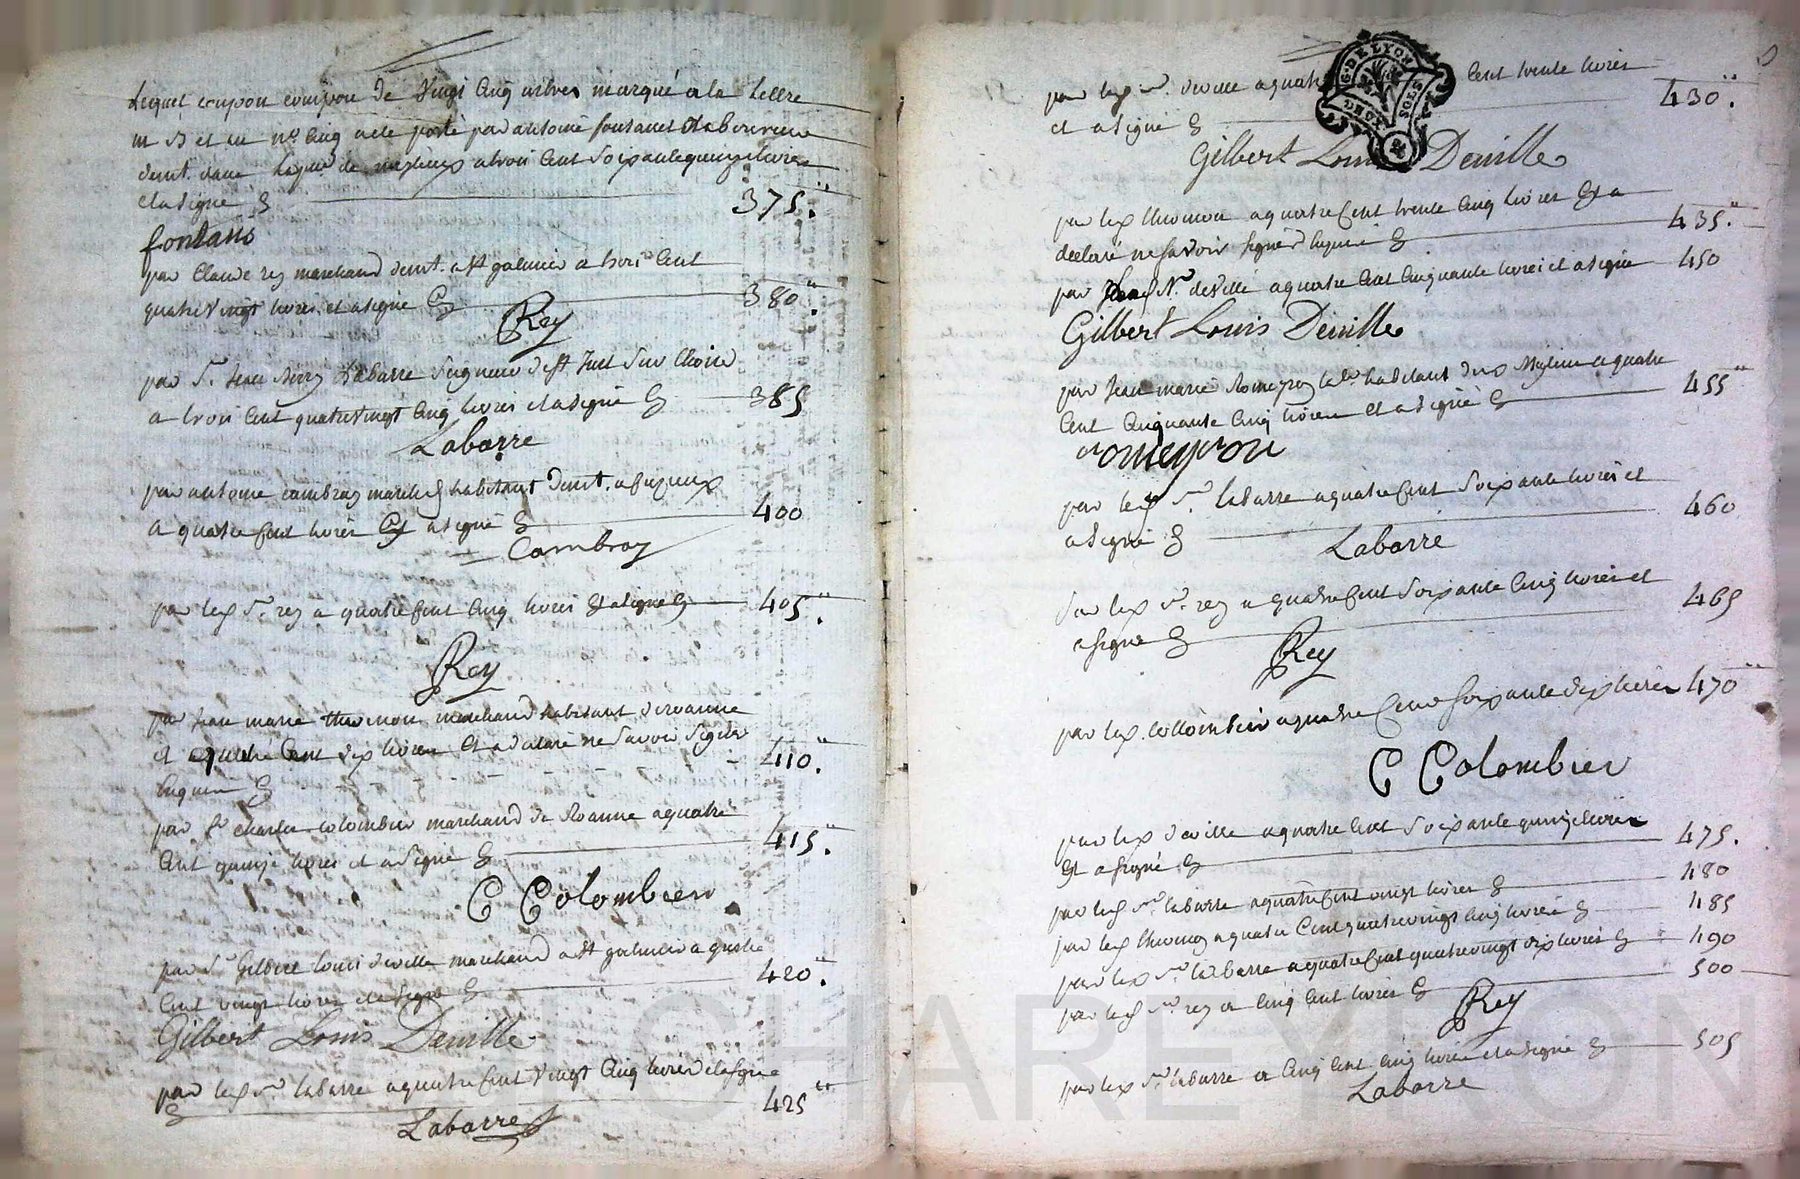 Lequel coupon de Vingt Cinq arbres marqué a la Lettre
m B et au n.o Cinq a ete porté par antoine fontanes Laboureur
demt. dans a trois Cent Soixante quinze livres
et a Signé 375.
fontans
par Claude rey marchand demt. a st galmier a trois Cent
quatre Vingt livres et a signé 380
Rey
par Sr. Jean Labarre Seigneur de st Just Sur Loire
a trois Cent quatrevingt Cinq livres et a Signé 385
Labarre
par antoine cambray march habitant demt. a
a quatre Cent livres Et a signé 400
Cambray
par led Sr. rey a quatre Cent Cinq livres Et a signé 405.
Rey
par Jean marie thomon marchand habitant de roanne
et a quatre Cent dix livres Et a declaré ne Savoir Signer 410.
Enquis
par Sr charles colombier marchand de Roanne a quatre
Cent quinze livres et a Signé 415.
C Colombier
par Sr Gilbert louis deville marchand a st galmier a quatre
Cent vingt livres et a Signé 420.
Gilbert Louis Deville
par led Sr labarre a quatre Cent Vingt Cinq livres et a Signé
425
Labarre
par led Sr. deville a quatre Cent trente livres
et a signé 430.
G. DE LYON
Gilbert Louis Deville
par led thomon a quatre Cent trente Cinq livres Et a
declaré ne savoir signer Enquis 435.
par led Sr. deville a quatre Cent Cinquante livres et a signé 450
Gilbert Louis Deville
par Jean marie romeyron habitant de a quatre
Cent Cinquante Cinq livres Et a signé 455
romeyron
par led Sr. labarre a quatre Cent Soixante livres et
a Signé 460
Labarre
par led Sr. rey a quatre Cent Soixante Cinq livres et
a signé 465
Rey
par led. collombier a quatre Cent soixante dix livres 470
C Colombier
par led deville a quatre Cent Soixante quinze livres
Et a signé 475.
par led Sr. labarre a quatre Cent vingt livres 480
par led thomon a quatre Cent quatrevingt Cinq livres 485
par led Sr labarre a quatre Cent quatrevingt dix livres 490
par led Sr. rey a Cinq Cent livres 500
Rey
par led Sr. labarre a Cinq Cent Cinq livres et a signé 505
Labarre
CHAREYRON